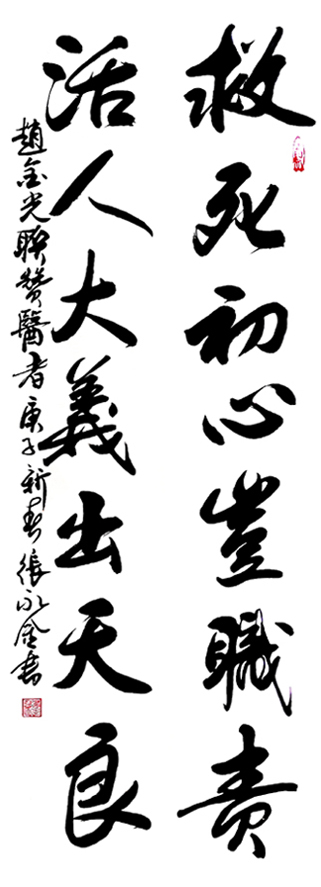 救死初心豈職責
活人大義出天良
趙金光聯贊醫者庚子新春張永金書